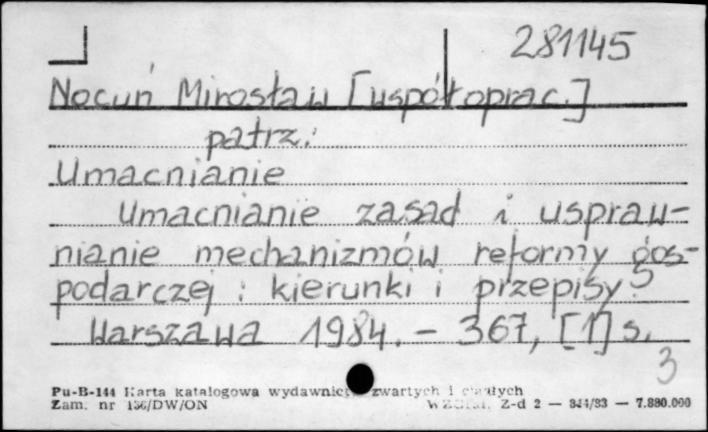 281145
Nocuń Mirosław [współoprac.]
patrz:
Umacnianie
Umacnianie zasad i uspraw-
nianie mechanizmów reformy gos-
podarczej : kierunki i przepisy.
Warszawa 1984. - 367, [1] s.
3
Pu-B-144 Karta katalogowa wydawnictw zwartych i ciągłych
Zam. nr 156/DW/ON Z-d 2 — 344/83 — 7.880.000